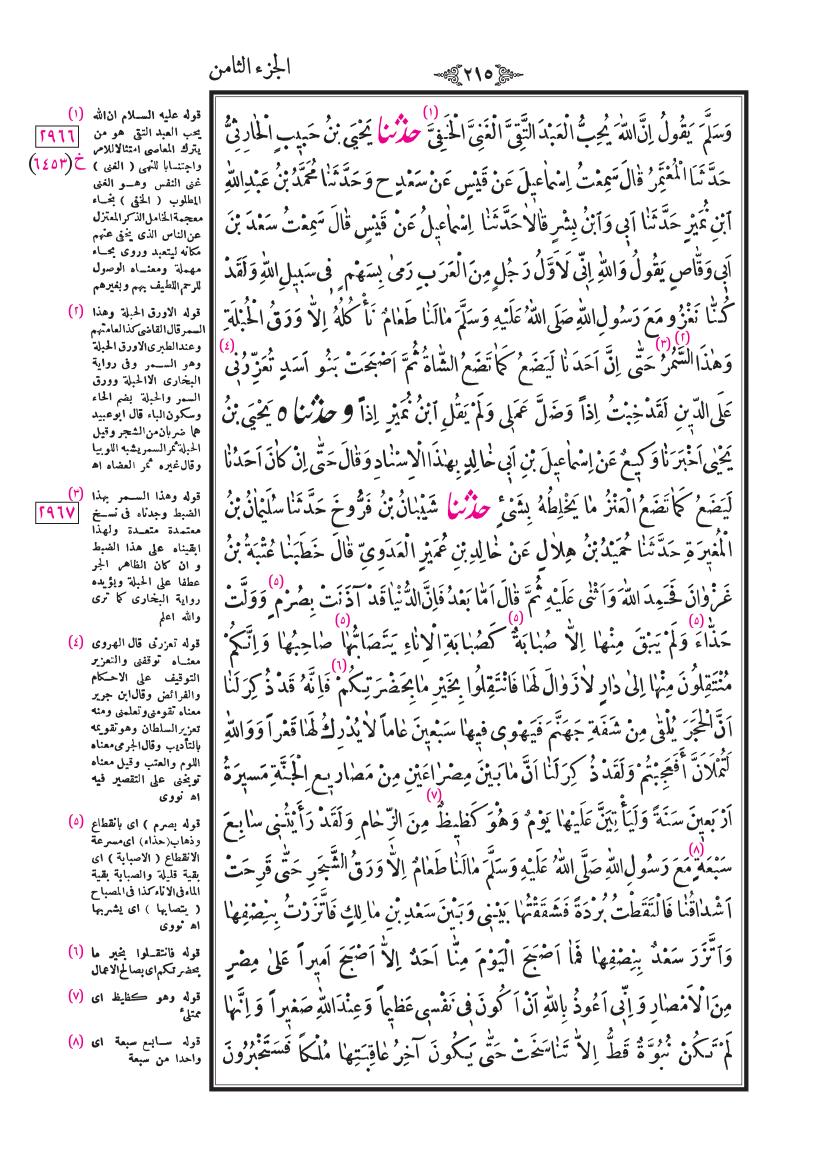 الجزء الثامن
٢١٥
وَسَلَّمَ يَقُولُ اِنَّ اللهَ يُحِبُّ الْعَبْدَ التَّقِىَّ الْغَنِىَّ الْخَفِىَّ (١) حدثنا يَحْيَى بْنُ حَبِيبٍ الْحَارِثِىُّ
حَدَّثَنَا الْمُعْتَمِرُ قَالَ سَمِعْتُ اِسْمَاعِيلَ عَنْ قَيْسٍ عَنْ سَعْدٍ ح وَحَدَّثَنَا مُحَمَّدُ بْنُ عَبْدِ اللهِ
ابْنِ نُمَيْرٍ حَدَّثَنَا اَبِى وَابْنُ بِشْرٍ قَالَا حَدَّثَنَا اِسْمَاعِيلُ عَنْ قَيْسٍ قَالَ سَمِعْتُ سَعْدَ بْنَ
اَبِى وَقَّاصٍ يَقُولُ وَاللهِ اِنِّى لَاَوَّلُ رَجُلٍ مِنَ الْعَرَبِ رَمٰى بِسَهْمٍ فِى سَبِيلِ اللهِ وَلَقَدْ
كُنَّا نَغْزُو مَعَ رَسُولِ اللهِ صَلَّى اللهُ عَلَيْهِ وَسَلَّمَ مَا لَنَا طَعَامٌ نَأْكُلُهُ اِلَّا وَرَقُ الْحُبْلَةِ
وَهٰذَا (٢) السَّمُرُ (٣) حَتّٰى اِنَّ اَحَدَنَا لَيَضَعُ كَمَا تَضَعُ الشَّاةُ ثُمَّ اَصْبَحَتْ بَنُو اَسَدٍ تُعَزِّرُنِى (٤)
عَلَى الدِّينِ لَقَدْ خِبْتُ اِذاً وَضَلَّ عَمَلِى وَلَمْ يَقُلِ ابْنُ نُمَيْرٍ اِذاً وحدثناه يَحْيَى بْنُ
يَحْيٰى اَخْبَرَنَا وَكِيعٌ عَنْ اِسْمَاعِيلَ بْنِ اَبِى خَالِدٍ بِهٰذَا الْاِسْنَادِ وَقَالَ حَتّٰى اِنْ كَانَ اَحَدُنَا
لَيَضَعُ كَمَا تَضَعُ الْعَنْزُ مَا يَخْلِطُهُ بِشَىْءٍ حدثنا شَيْبَانُ بْنُ فَرُّوخَ حَدَّثَنَا سُلَيْمَانُ بْنُ
الْمُغِيرَةِ حَدَّثَنَا حُمَيْدُ بْنُ هِلَالٍ عَنْ خَالِدِ بْنِ عُمَيْرٍ الْعَدَوِىِّ قَالَ خَطَبَنَا عُتْبَةُ بْنُ
غَزْوَانَ فَحَمِدَ اللهَ وَاَثْنٰى عَلَيْهِ ثُمَّ قَالَ اَمَّا بَعْدُ فَاِنَّ الدُّنْيَا قَدْ آذَنَتْ بِصُرْمٍ (٥) وَوَلَّتْ
حَذَّاءَ (٥) وَلَمْ يَبْقَ مِنْهَا اِلَّا صُبَابَةٌ (٥) كَصُبَابَةِ الْاِنَاءِ يَتَصَابُّهَا (٥) صَاحِبُهَا وَاِنَّكُمْ
مُنْتَقِلُونَ مِنْهَا اِلٰى دَارٍ لَا زَوَالَ لَهَا فَانْتَقِلُوا بِخَيْرِ مَا بِحَضْرَتِكُمْ (٦) فَاِنَّهُ قَدْ ذُكِرَ لَنَا
اَنَّ الْحَجَرَ يُلْقٰى مِنْ شَفَةِ جَهَنَّمَ فَيَهْوِى فِيهَا سَبْعِينَ عَاماً لَا يُدْرِكُ لَهَا قَعْراً وَوَاللهِ
لَتُمْلَاَنَّ اَفَعَجِبْتُمْ وَلَقَدْ ذُكِرَ لَنَا اَنَّ مَا بَيْنَ مِصْرَاعَيْنِ مِنْ مَصَارِيعِ الْجَنَّةِ مَسِيرَةُ
اَرْبَعِينَ سَنَةً وَلَيَأْتِيَنَّ عَلَيْهَا يَوْمٌ وَهُوَ كَظِيظٌ (٧) مِنَ الزِّحَامِ وَلَقَدْ رَأَيْتُنِى سَابِعَ
سَبْعَةٍ (٨) مَعَ رَسُولِ اللهِ صَلَّى اللهُ عَلَيْهِ وَسَلَّمَ مَا لَنَا طَعَامٌ اِلَّا وَرَقُ الشَّجَرِ حَتّٰى قَرِحَتْ
اَشْدَاقُنَا فَالْتَقَطْتُ بُرْدَةً فَشَقَقْتُهَا بَيْنِى وَبَيْنَ سَعْدِ بْنِ مَالِكٍ فَاتَّزَرْتُ بِنِصْفِهَا
وَاتَّزَرَ سَعْدٌ بِنِصْفِهَا فَمَا اَصْبَحَ الْيَوْمَ مِنَّا اَحَدٌ اِلَّا اَصْبَحَ اَمِيراً عَلٰى مِصْرٍ
مِنَ الْاَمْصَارِ وَاِنِّى اَعُوذُ بِاللهِ اَنْ اَكُونَ فِى نَفْسِى عَظِيماً وَعِنْدَ اللهِ صَغِيراً وَاِنَّهَا
لَمْ تَكُنْ نُبُوَّةٌ قَطُّ اِلَّا تَنَاسَخَتْ حَتّٰى يَكُونَ آخِرُ عَاقِبَتِهَا مُلْكاً فَسَتَخْبُرُونَ
(١) قوله عليه السلام ان الله
٢٩٦٦ يحب العبد التقى هو من
يترك المعاصى امتثالا للامر
خ(٦٤٥٣) واجتنابا للنهى ( الغنى )
غنى النفس وهو الغنى
المطلوب ( الخفى ) بخاء
معجمة الخامل الذكر المعتزل
عن الناس الذى يخفى عنهم
مكانه ليتعبد وروى بحاء
مهملة ومعناه الوصول
للرحم اللطيف بهم وبغيرهم
(٢) قوله الاورق الحبلة وهذا
السمر قال القاضى كذا لعامتهم
وعند الطبرى الاورق الحبلة
وهو السمر وفى رواية
البخارى الا الحبلة وورق
السمر والحبلة بضم الحاء
وسكون الباء قال ابو عبيد
هما ضربان من الشجر وقيل
الحبلة ثمر السمر يشبه اللوبيا
وقال غيره ثمر العضاه اه
(٣) قوله وهذا السمر بهذا
٢٩٦٧ الضبط وجدناه فى نسخ
معتمدة متعدة ولهذا
ابقيناه على هذا الضبط
و ان كان الظاهر الجر
عطفا على الحبلة ويؤيده
رواية البخارى كما ترى
والله اعلم
(٤) قوله تعزرنى قال الهروى
معناه توقفنى والتعزير
التوقيف على الاحكام
والفرائض وقال ابن جرير
معناه تقومنى وتعلمنى ومنه
تعزير السلطان وهو تقويمه
بالتأديب وقال الجرمى معناه
اللوم والعتب وقيل معناه
توبخنى على التقصير فيه
اه نووى
(٥) قوله بصرم ) اى بانقطاع
وذهاب (حذاء) اى مسرعة
الانقطاع ( الاصبابة ) اى
بقية قليلة والصبابة بقية
الماء فى الاناء كذا فى المصباح
( يتصابها ) اى يشربها
اه نووى
(٦) قوله فانتقلوا بخير ما
بحضرتكم اى بصالح الاعمال
(٧) قوله وهو كظيظ اى
ممتلئ
(٨) قوله سابع سبعة اى
واحدا من سبعة